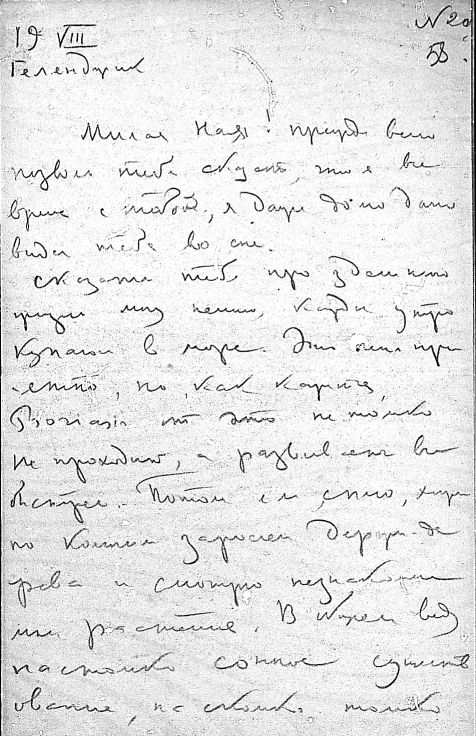 19 VIII
N 20
58.
Геленджик
Милая Ная! прежде всего
позволь тебе сказать, что я все
время с тобой, я даже до
видел тебя во сне.
сказать тебе про здешнюю
жизнь могу немного. Каждое утро
купаюсь в море. Это очень при
ятно, но, как кажется,
Psoriasis от этого не только
не проходит, а развивается все
быстрее. Потом ем, сплю, хожу
по зарослям держи-де
рева и смотрю незнакомые
мне растения. В общем веду
настолько сонное существ
ование, насколько только